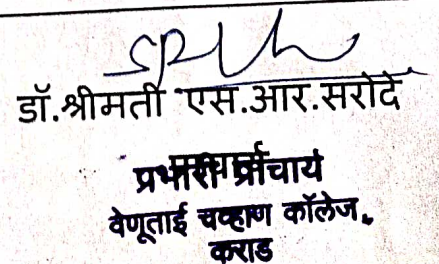 डॉ.श्रीमती एस.आर.सरोदे
प्रभारी प्राचार्य
वेणूताई चव्हाण कॉलेज,
कराड